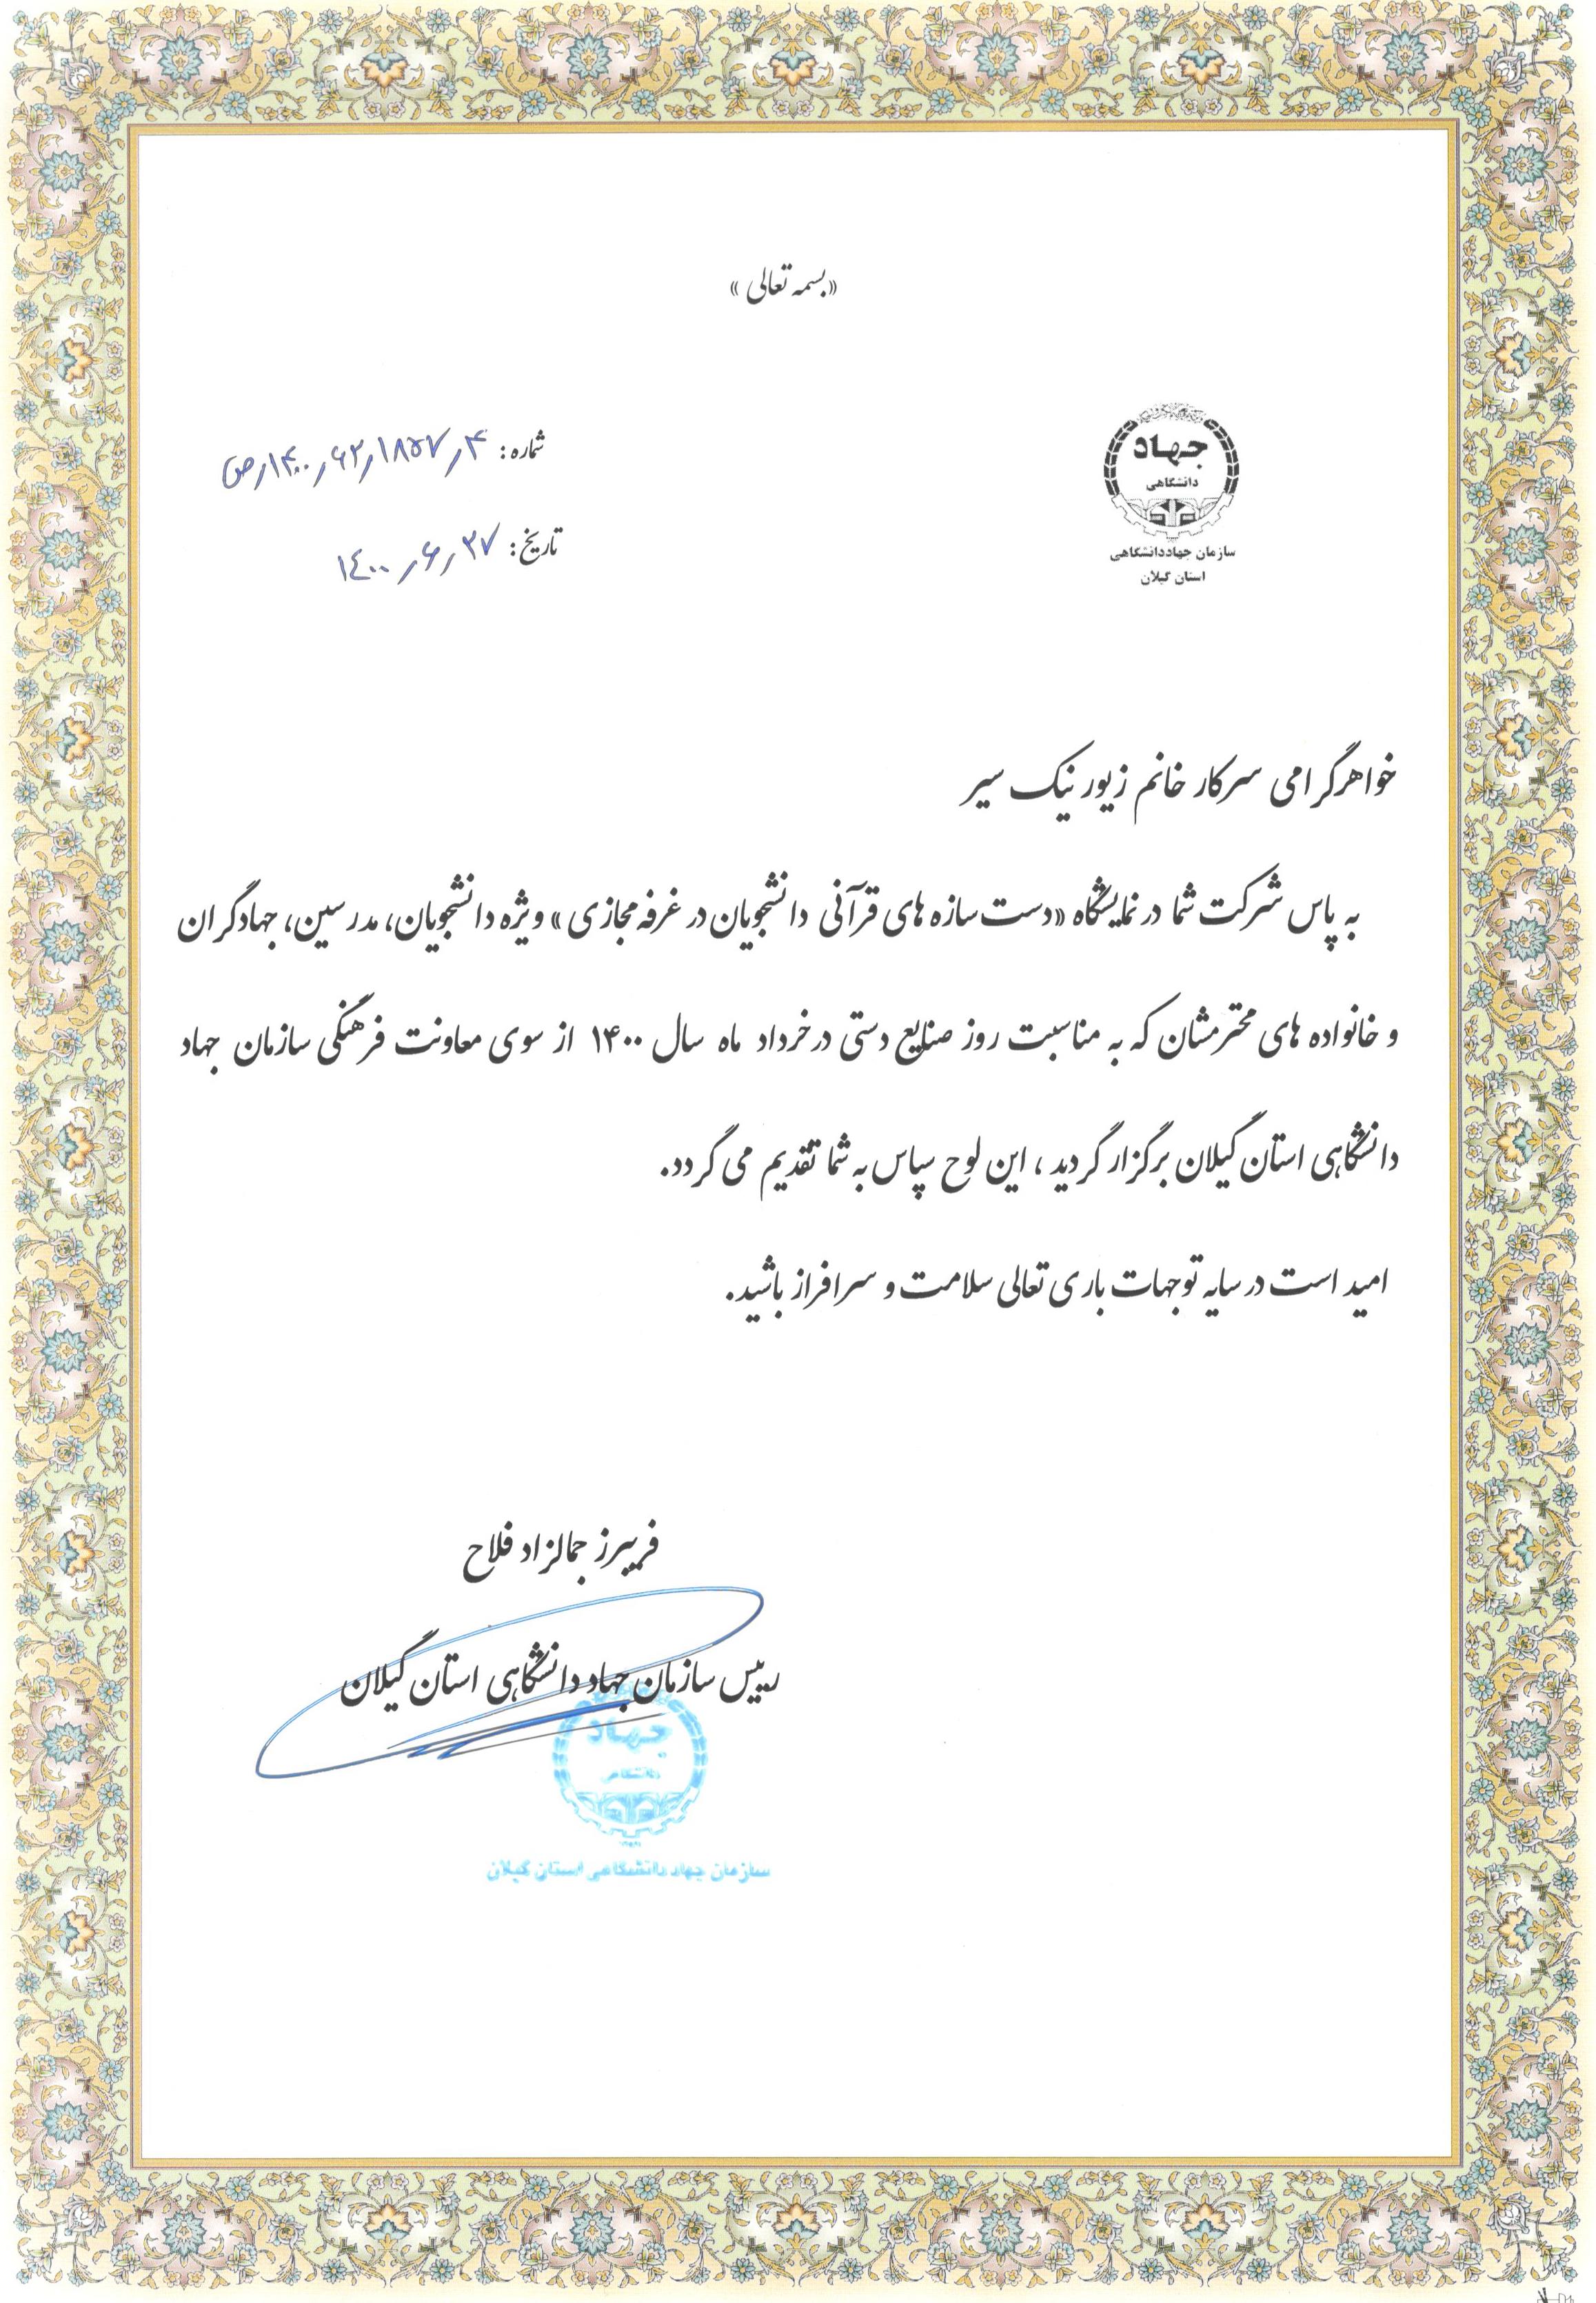 «بسمه تعالی»
جهاد
دانشگاهی
سازمان جهاددانشگاهی
استان گیلان
شماره: ۴ر۱۸۵۷ر۶۲ر۱۴۰۰رص
تاریخ: ۲۷ر۶ر۱۴۰۰
خواهرگرامی سرکار خانم زیور نیک سیر
به پاس شرکت شما در نمایشگاه «دست سازه های قرآنی دانشجویان در غرفه مجازی» ویژه دانشجویان، مدرسین، جهادگران
و خانواده های محترمشان که به مناسبت روز صنایع دستی در خرداد ماه سال ۱۴۰۰ از سوی معاونت فرهنگی سازمان جهاد
دانشگاهی استان گیلان برگزار گردید، این لوح سپاس به شما تقدیم می گردد.
امید است در سایه توجهات باری تعالی سلامت و سرافراز باشید.
فریبرز جمالزاد فلاح
رییس سازمان جهاد دانشگاهی استان گیلان
جهاد
دانشگاهی
سازمان جهاد دانشگاهی استان گیلان